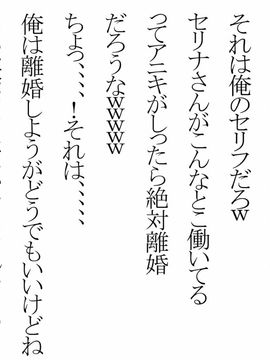 それは俺のセリフだろw
セリナさんがこんなとこ働いてる
ってアニキがしったら絶対離婚
だろうなwwwww
ちょっ、、、！それは、、、、、
俺は離婚しようがどうでもいいけどね